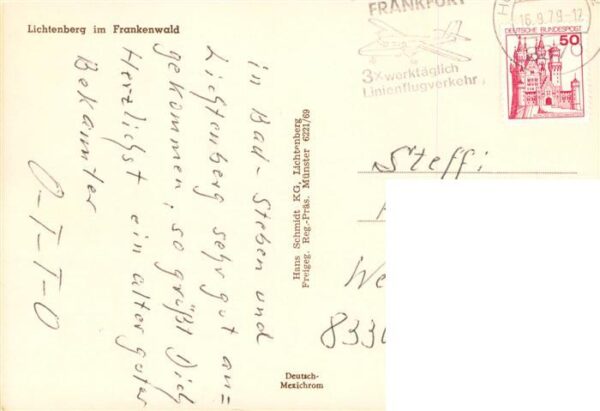 Lichtenberg im Frankenwald
in Bad-Steben und
Lichtenberg sehr gut an=
gekommen, so grüßt Dich
Herzlichst ein alter guter
Bekannter
O-T-T-O
Hans Schmidt KG, Lichtenberg
Freigeg. Reg.-Präs. Münster 6221/69
Deutsch-
Mexichrom
FRANKFURT
3x werktäglich
Linienflugverkehr
16.9.79-12
DEUTSCHE BUNDESPOST
50
Steffi
We
833